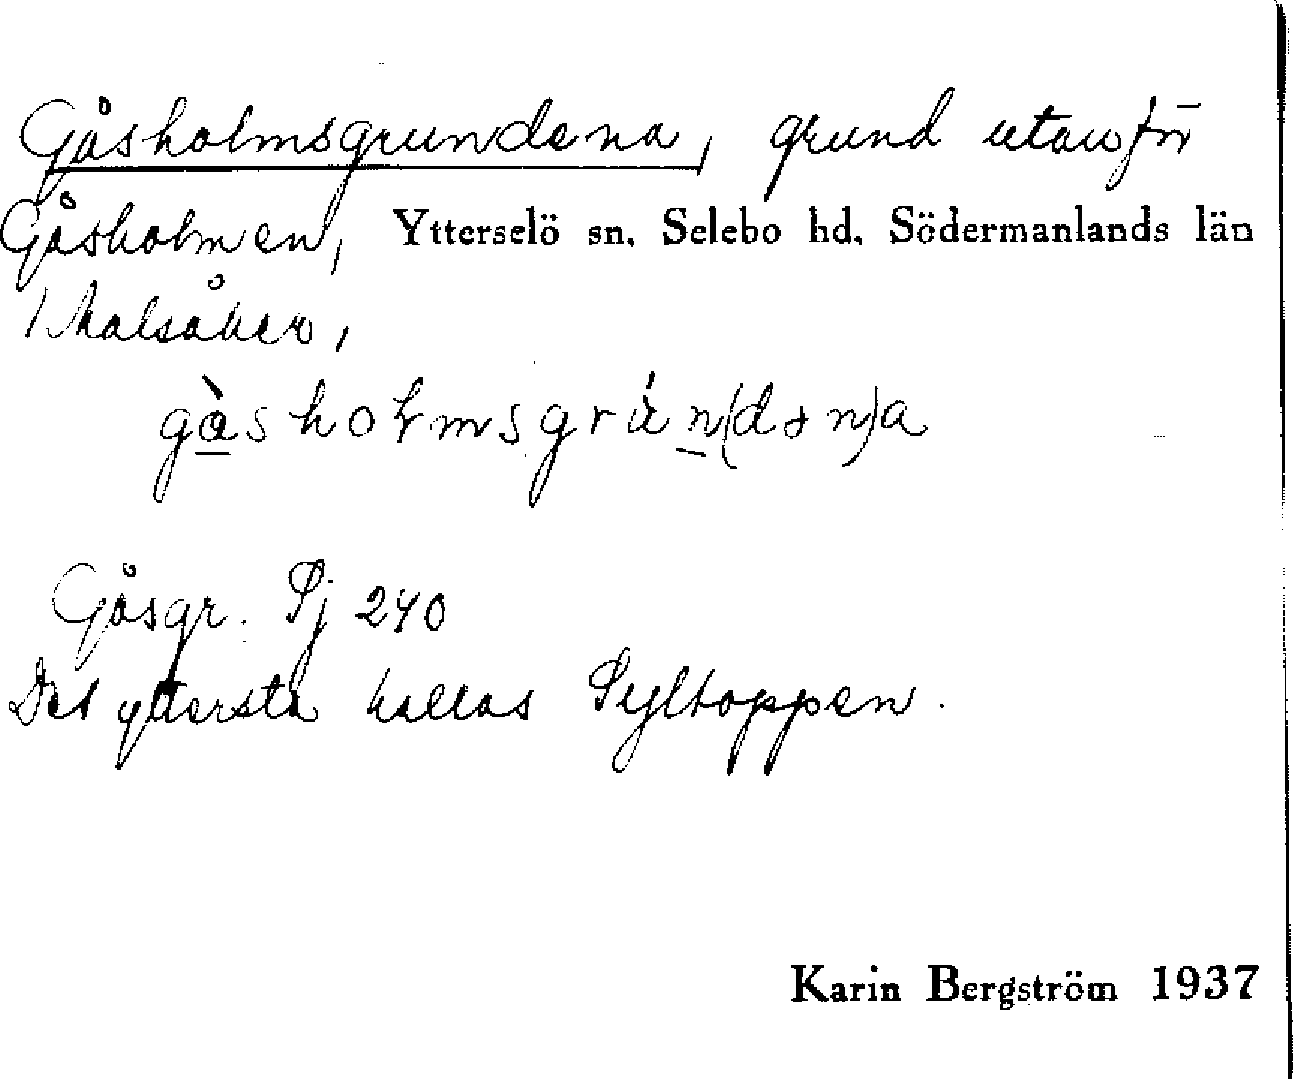 Gåsholmsgrundena, grund utanför
Gåsholmen, Ytterselö sn. Selebo hd. Södermanlands län
Malsåker,
Gåsgr. Sj 240
Det yttersta kallas Syltoppen.
Karin Bergström 1937